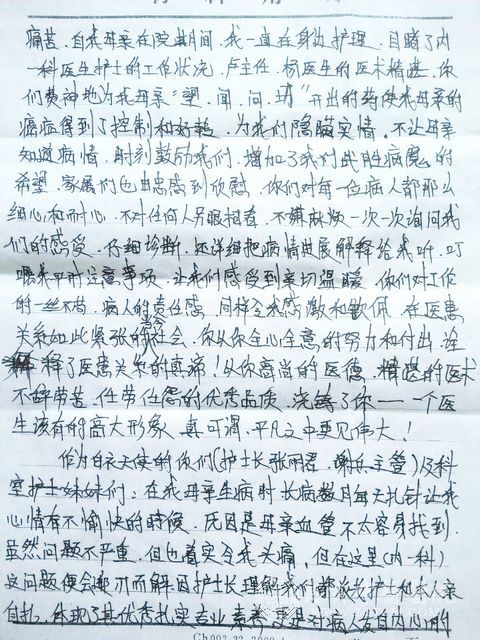 痛苦。自我母亲在院其间，我一直在身边护理，目睹了内
一科医生护士的工作状况，卢主任、杨医生的医术精湛，你
们费神地为我母亲“望、闻、问、切”开出的药使我母亲的
癌症得到了控制和好转，为我们隐瞒实情，不让母亲
知道病情，时刻鼓励我们，增加了我们战胜病魔的
希望，家属们也由衷感到欣慰，你们对每一位病人都那么
细心和耐心，不对任何人另眼相看，不嫌麻烦一次一次询问我
们的感受，仔细诊断，还详细把病情进展解释给我听，叮
嘱我平时注意事项，让我们感受到亲切温暖，你们对工作
的一丝不苟，病人的责任感，同样令我感激和钦佩，在医患
关系如此紧张的当今社会，你从你全心全意的努力和付出，诠
释了医患关系的真谛！从你高尚的医德，精湛的医术
不辞劳苦，任劳任怨的优秀品质，浇铸了你——一个医
生该有的高大形象，真可谓，平凡之中更见伟大！
作为白衣天使的你们（护士长张雨君、谢 主管）及科
室护士妹妹们：在我母亲生病时长病数月每天扎针让我
心情有不愉快的时候，厌因是母亲血管不太容易找到，
虽然问题不严重，但也着实令我头痛，但在这里（内一科）
这问题便会迎刃而解，因护士长理解我们 护士和本人亲
自扎，体现了其优秀扎实专业素养及是对病人发自内心的